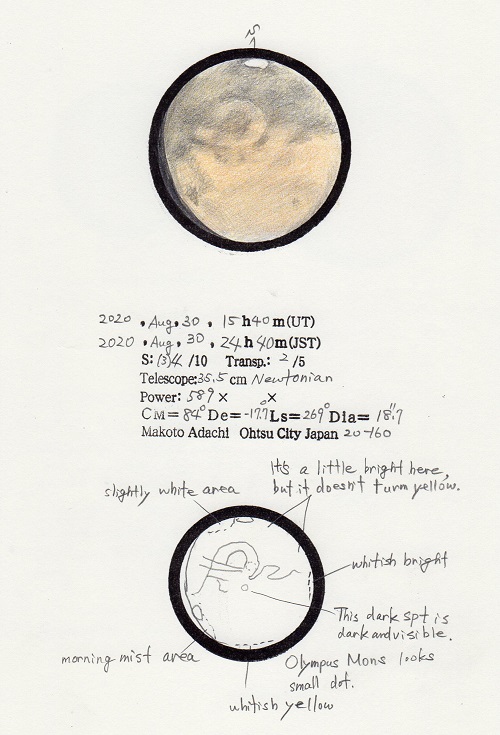 S
2020 , Aug, 30 , 15h40m(UT)
2020 , Aug, 30 , 24h40m(JST)
S: (3)4 /10 Transp.: 2 /5
Telescope: 35.5 cm Newtonian
Power: 589× ×
CM= 84° De= -17.7 Ls= 269° Dia= 18".7
Makoto Adachi Ohtsu City Japan 20-160
It's a little bright here,
but it doesn't turm yellow.
slightly white area
whitish bright
This dark spt is
dark and visible.
morning mist area
Olympus Mons looks
small dot.
whitish yellow